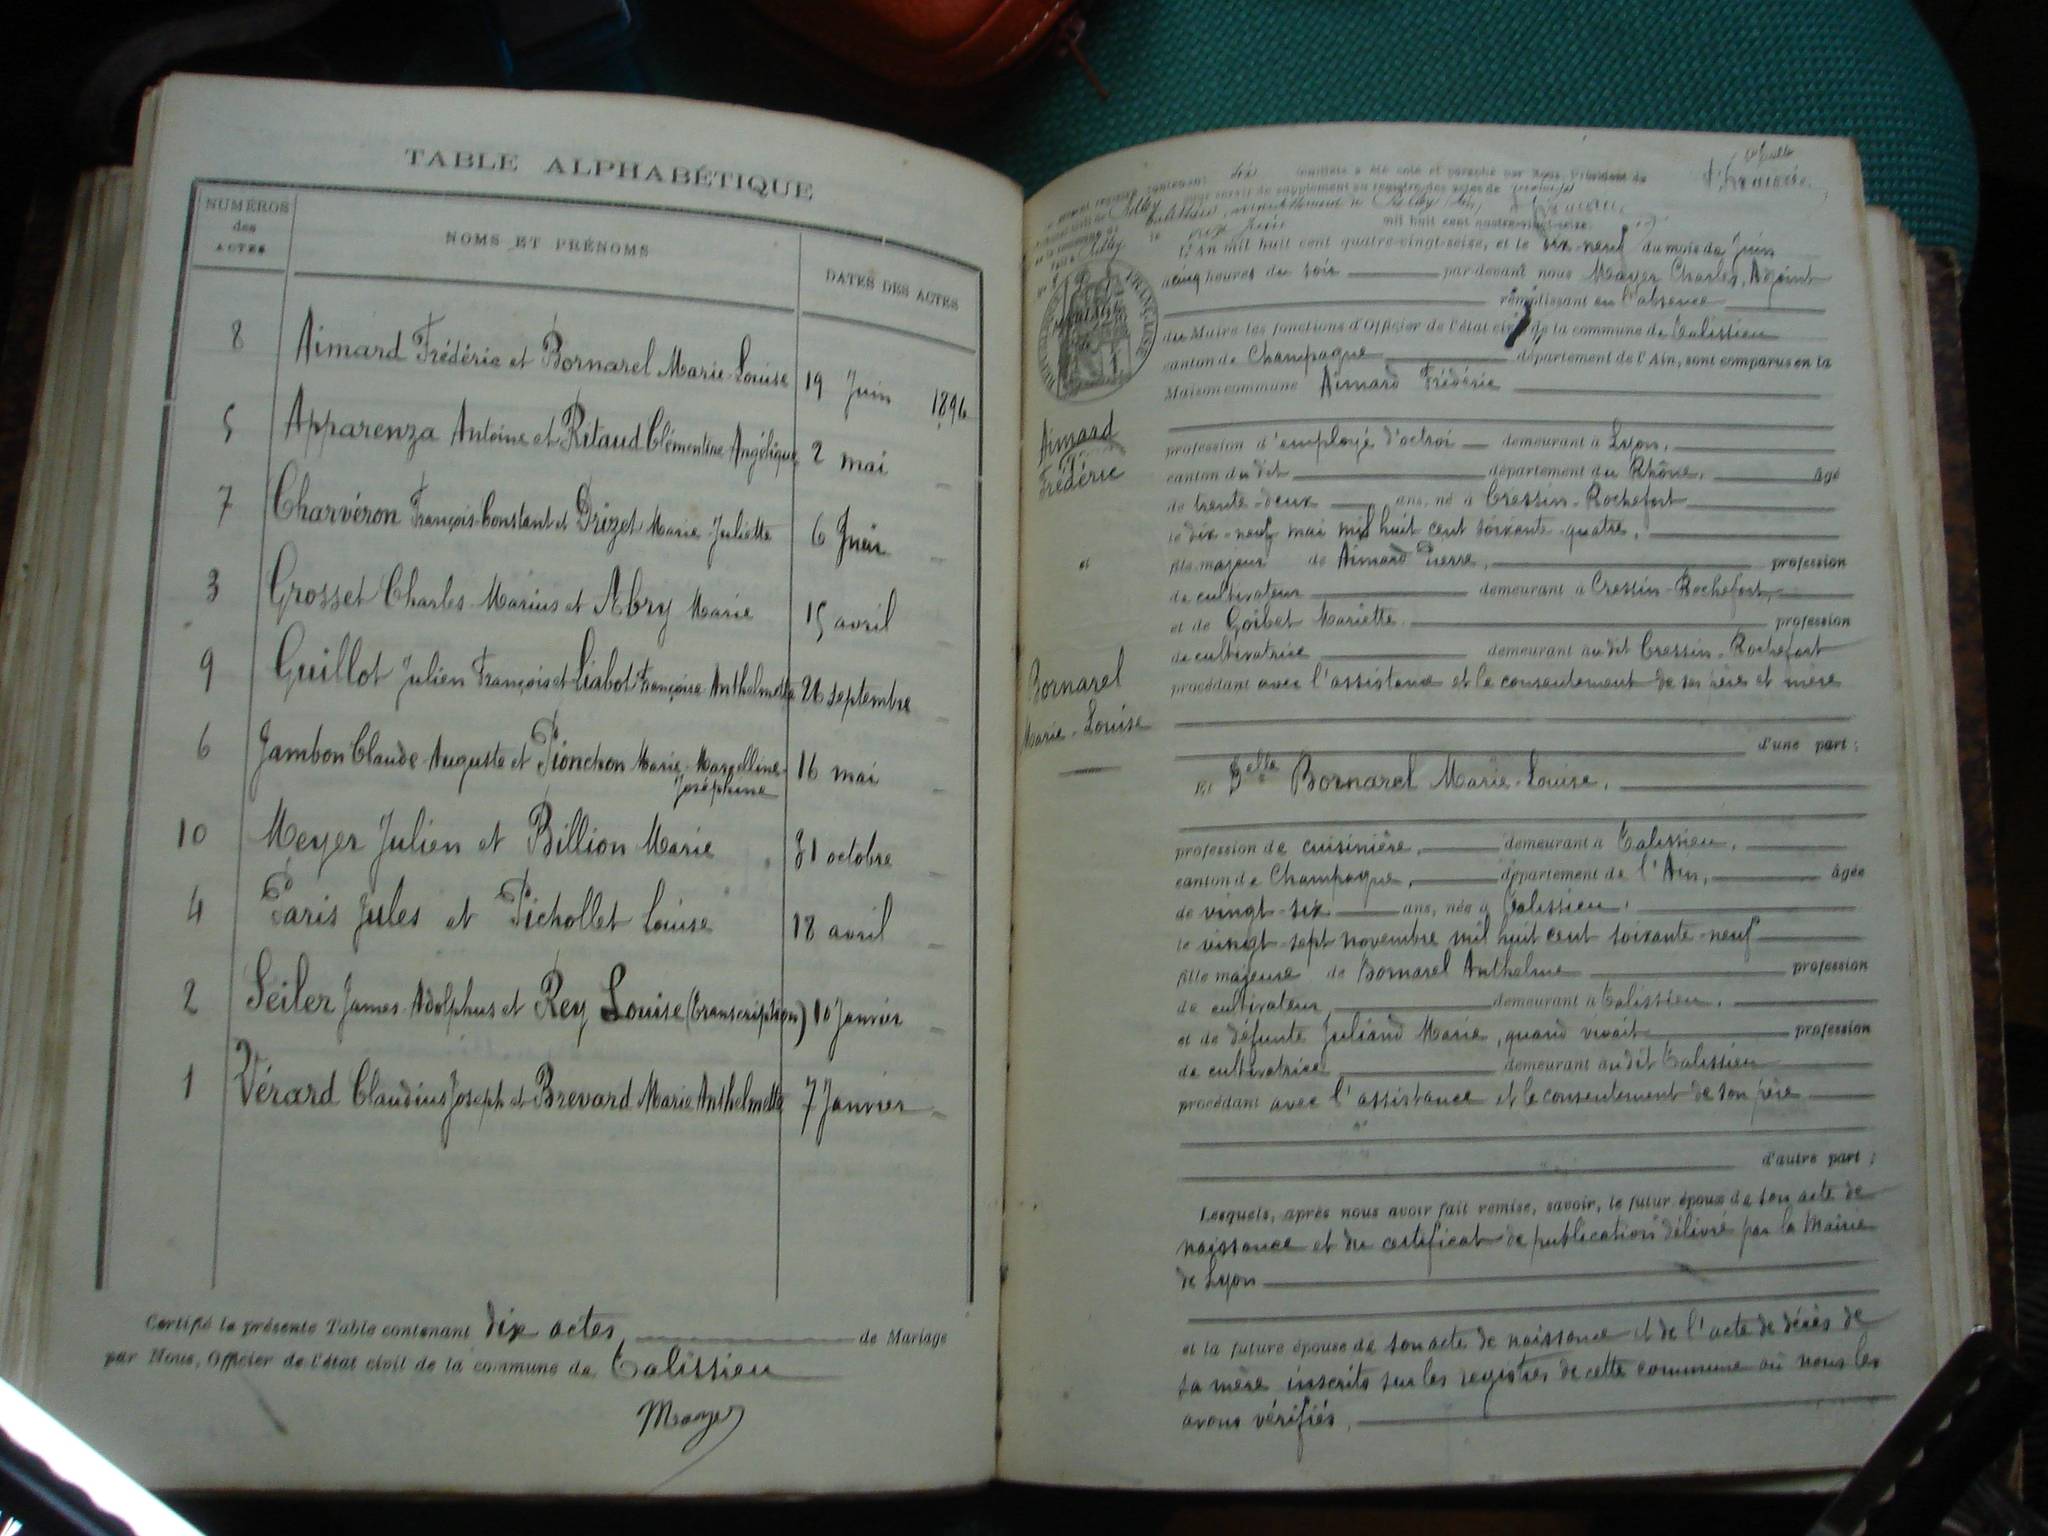 TABLE ALPHABÉTIQUE
NUMÉROS des ACTES
NOMS ET PRÉNOMS
DATES DES ACTES
8 Aimard Frédéric et Bornarel Marie-Louise 19 Juin 1896
5 Apparenza Antoine et Ritaud Clémentine Angélique 2 mai
7 Charvéron François-Constant et Drizet Marie-Juliette 6 Juin
3 Grosset Charles-Marius et Abry Marie 15 avril
9 Guillot Julien François et Liabot Françoise-Anthelmette 26 septembre
6 Jambon Claude-Auguste et Pionchon Marie-Marcelline
Joséphine 16 mai
10 Meyer Julien et Billion Marie 31 octobre
4 Paris Jules et Pichollet Louise 18 avril
2 Seiler James-Adolphus et Rey Louise (transcription) 10 Janvier
1 Vérard Claudius Joseph et Brevard Marie Anthelmette 7 Janvier
Certifié la présente Table contenant dix actes de Mariage
par Nous, Officier de l'état civil de la commune de Talissieu
feuillets a été coté et paraphé par Nous, Président du
pour servir de supplément au registre des actes de
Talissieu, arrondissement de Belley
mil huit cent quatre-vingt-seize.
L'An mil huit cent quatre-vingt-seize, et le dix-neuf du mois de Juin
à cinq heures du soir par-devant nous Mayer Charles, Adjoint
remplissant en l'absence
du Maire les fonctions d'Officier de l'état civil de la commune de Talissieu
canton de Champagne département de l'Ain, sont comparus en la
Maison commune Aimard Frédéric
Aimard
Frédéric
et
Bornarel
Marie-Louise
profession d'employé d'octroi demeurant à Lyon,
canton du dit département du Rhône, âgé
de trente-deux ans, né à Cressin-Rochefort
le dix-neuf mai mil huit cent soixante-quatre,
fils majeur de Aimard Pierre, profession
de cultivateur demeurant à Cressin-Rochefort,
et de Goibet Mariette profession
de cultivatrice demeurant au dit Cressin-Rochefort
procédant avec l'assistance et le consentement de ses père et mère
d'une part;
Et Delle Bornarel Marie-Louise,
profession de cuisinière, demeurant à Talissieu,
canton de Champagne, département de l'Ain, âgée
de vingt-six ans, née à Talissieu,
le vingt-sept novembre mil huit cent soixante-neuf
fille majeure de Bornarel Anthelme profession
de cultivateur demeurant à Talissieu,
et de défunte Juliand Marie, quand vivait profession
de cultivatrice demeurant au dit Talissieu
procédant avec l'assistance et le consentement de son père
d'autre part;
Lesquels, après nous avoir fait remise, savoir, le futur époux de son acte de
naissance et du certificat de publication délivré par la Mairie
de Lyon
et la future épouse de son acte de naissance et de l'acte de décès de
sa mère inscrits sur les registres de cette commune où nous les
avons vérifiés,